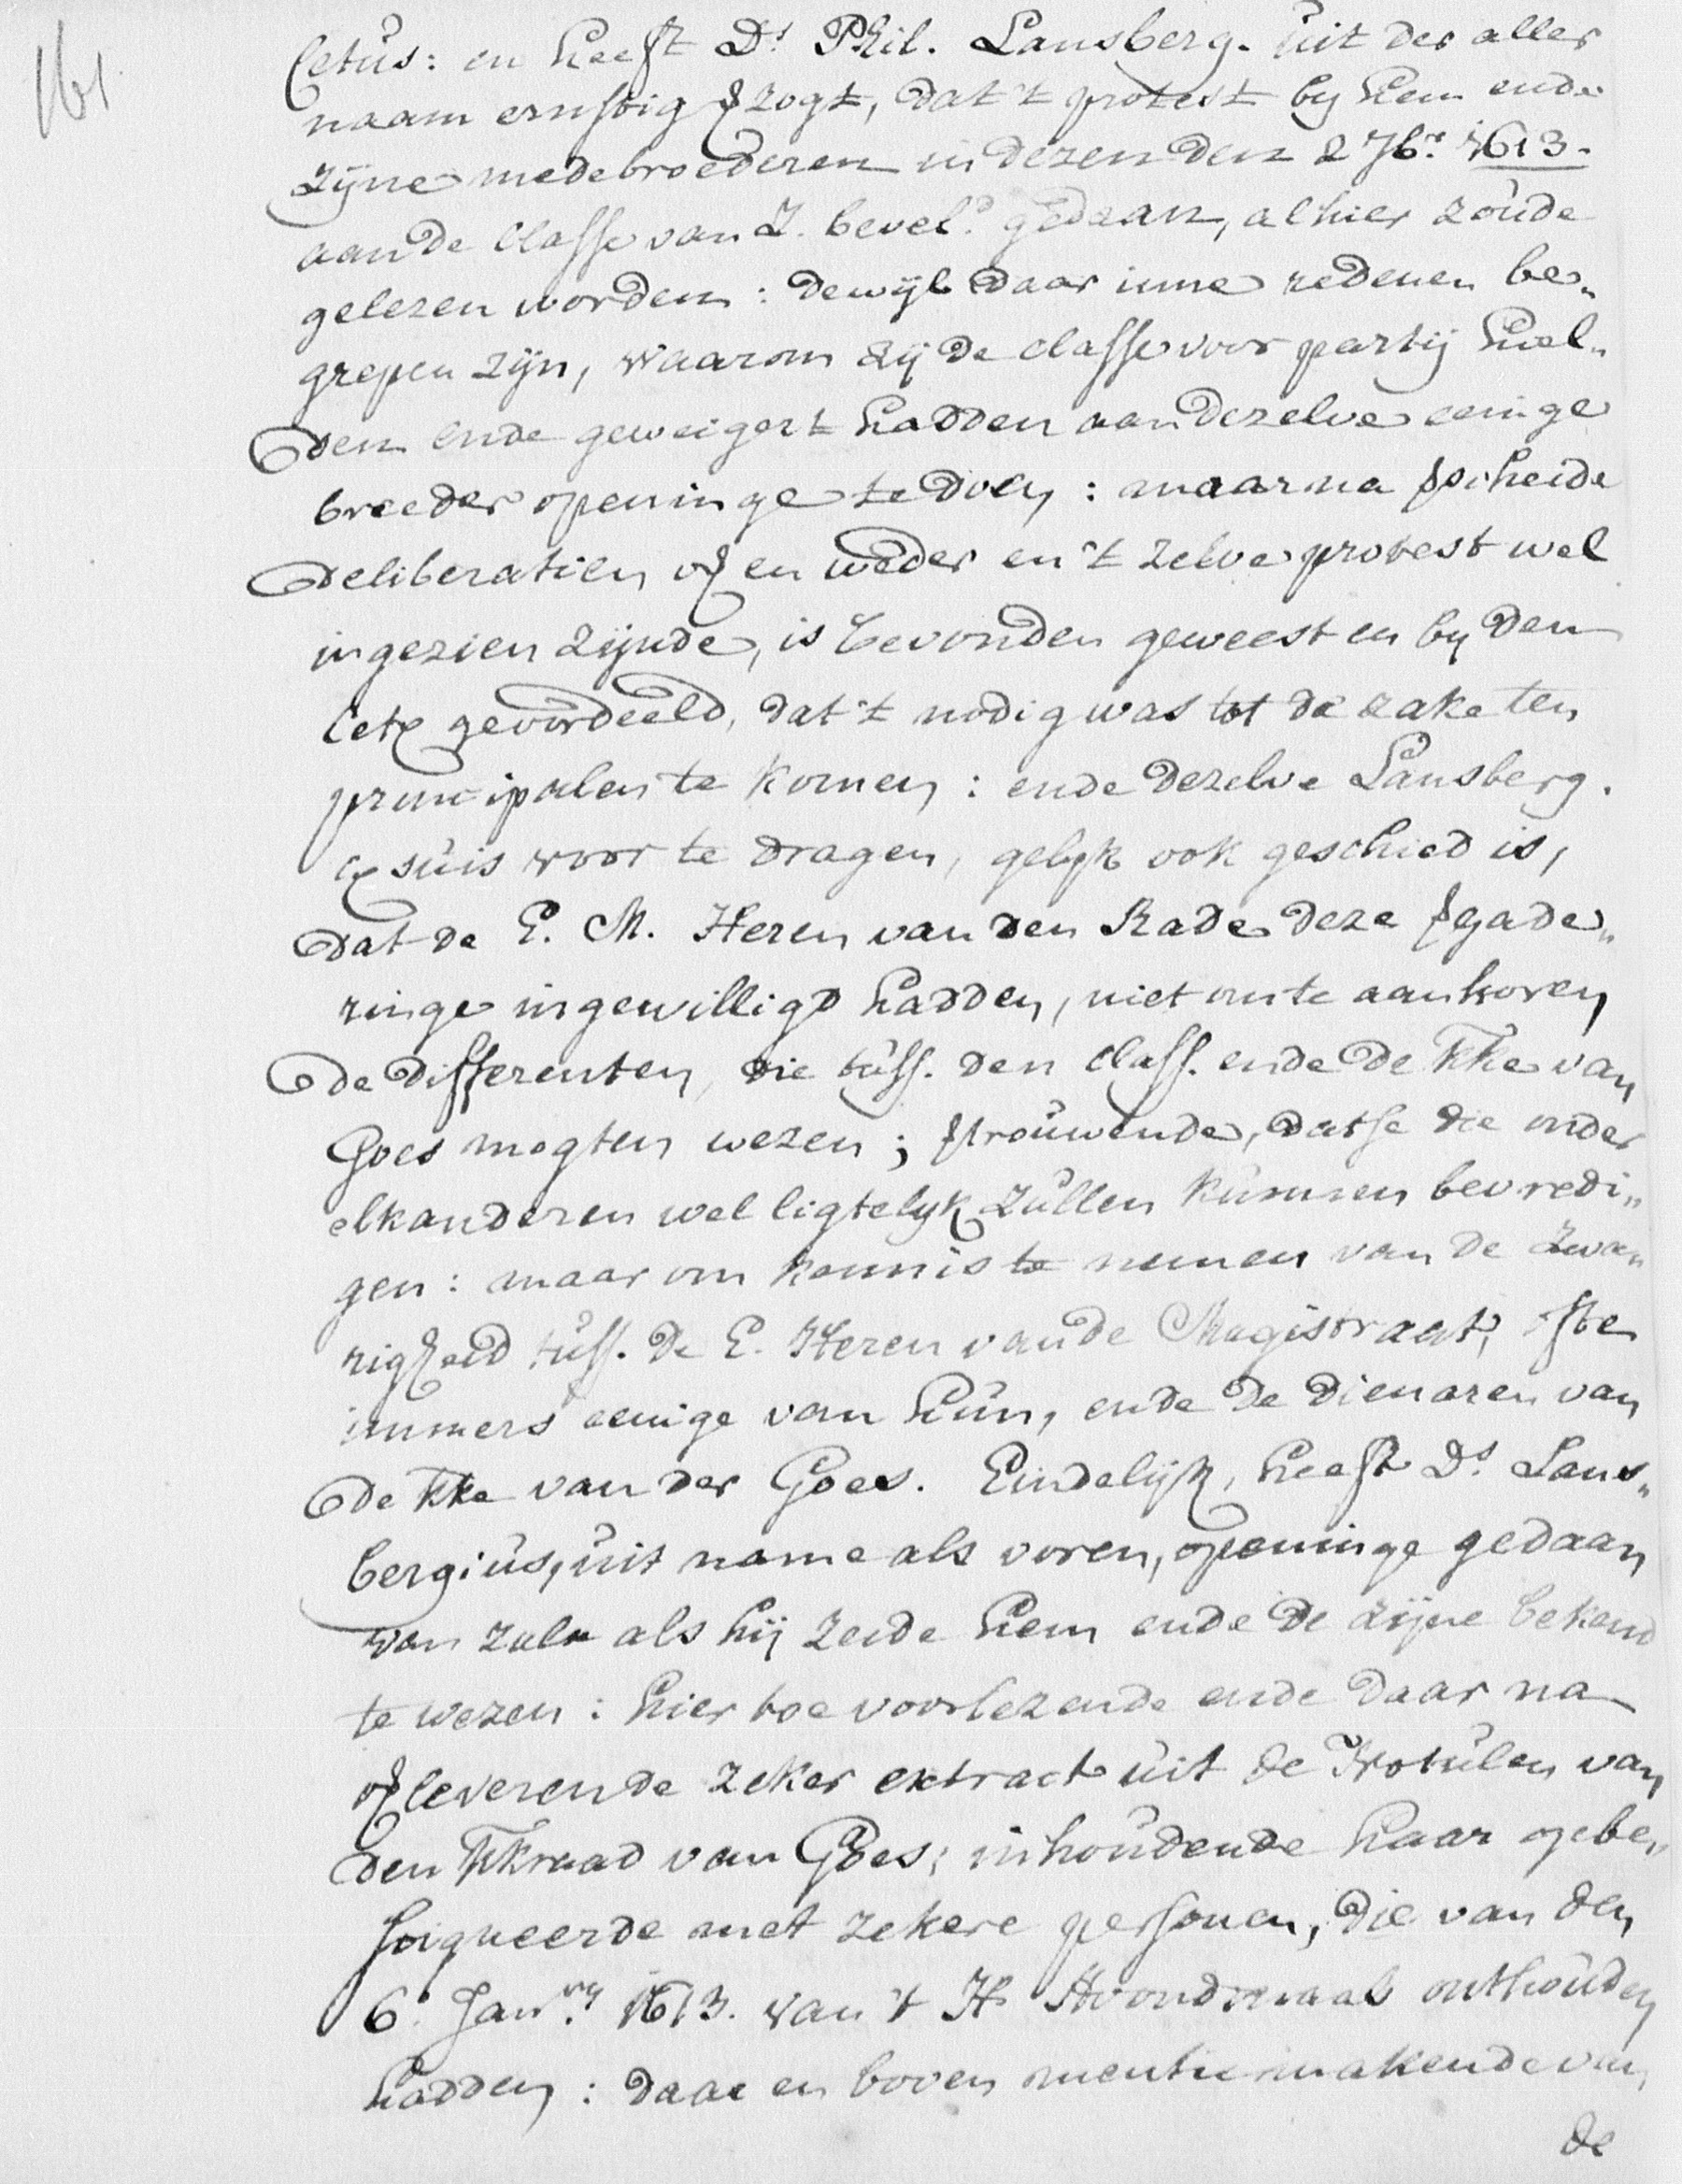 161.
Cetus: en heeft Ds. Phil. Lansberg. uit der aller
naam ernstig vzogt, dat 't protest by hem ende
zijne medebroederen in dezen den 2 7br. 1613.
aan de Classe van Z. bevel.d gedaan, alhier zoude
gelezen worden: dewyl daar inne redenen be„
grepen zijn, waarom zij de classe voor partij hiel„
den ende geweigert hadden aan dezelve eenige
breeder openinge te doen: maar na vscheide
deliberatien op en weder en 't zelve protest wel
ingezien zijnde, is bevonden geweest en by den
Cetu gevordeeld, dat 't nodig was tot de zake ten
principalen te komen: ende dezelve Lansberg.
suis voor te dragen, gelyk ook geschied is,
dat de E. M. Heren van den Rade deze vgade„
ringe ingewilligd hadden, niet om te aanhoren
de differenten, die tuss. den Class. ende de kke van
Goes mogten wezen; vtrouwende, datse die onder
elkanderen wel ligtelyk zullen kunnen bevredi„
gen: maar om kennis te nemen van de zwa„
righeid tuss. de E. Heren van de Magistraat, ofte
immers eenige van hun, ende de dienaren van
de kke van der Goes. Eindelijk, heeft Ds. Lans„
bergius, uit name als voren, openinge gedaan
van zulx als hij zeide hem ende de zijne bekend
te wezen: hier toe voorlezende ende daar na
opleverende zeker extract uit de Notulen van
den kkraad van Goes; inhoudende haar gebe„
soigneerde met zekere personen, die van den
6. Janry. 1613. van 't H. Avondmaal onthouden
hadden: daar en boven mentie makende van
de